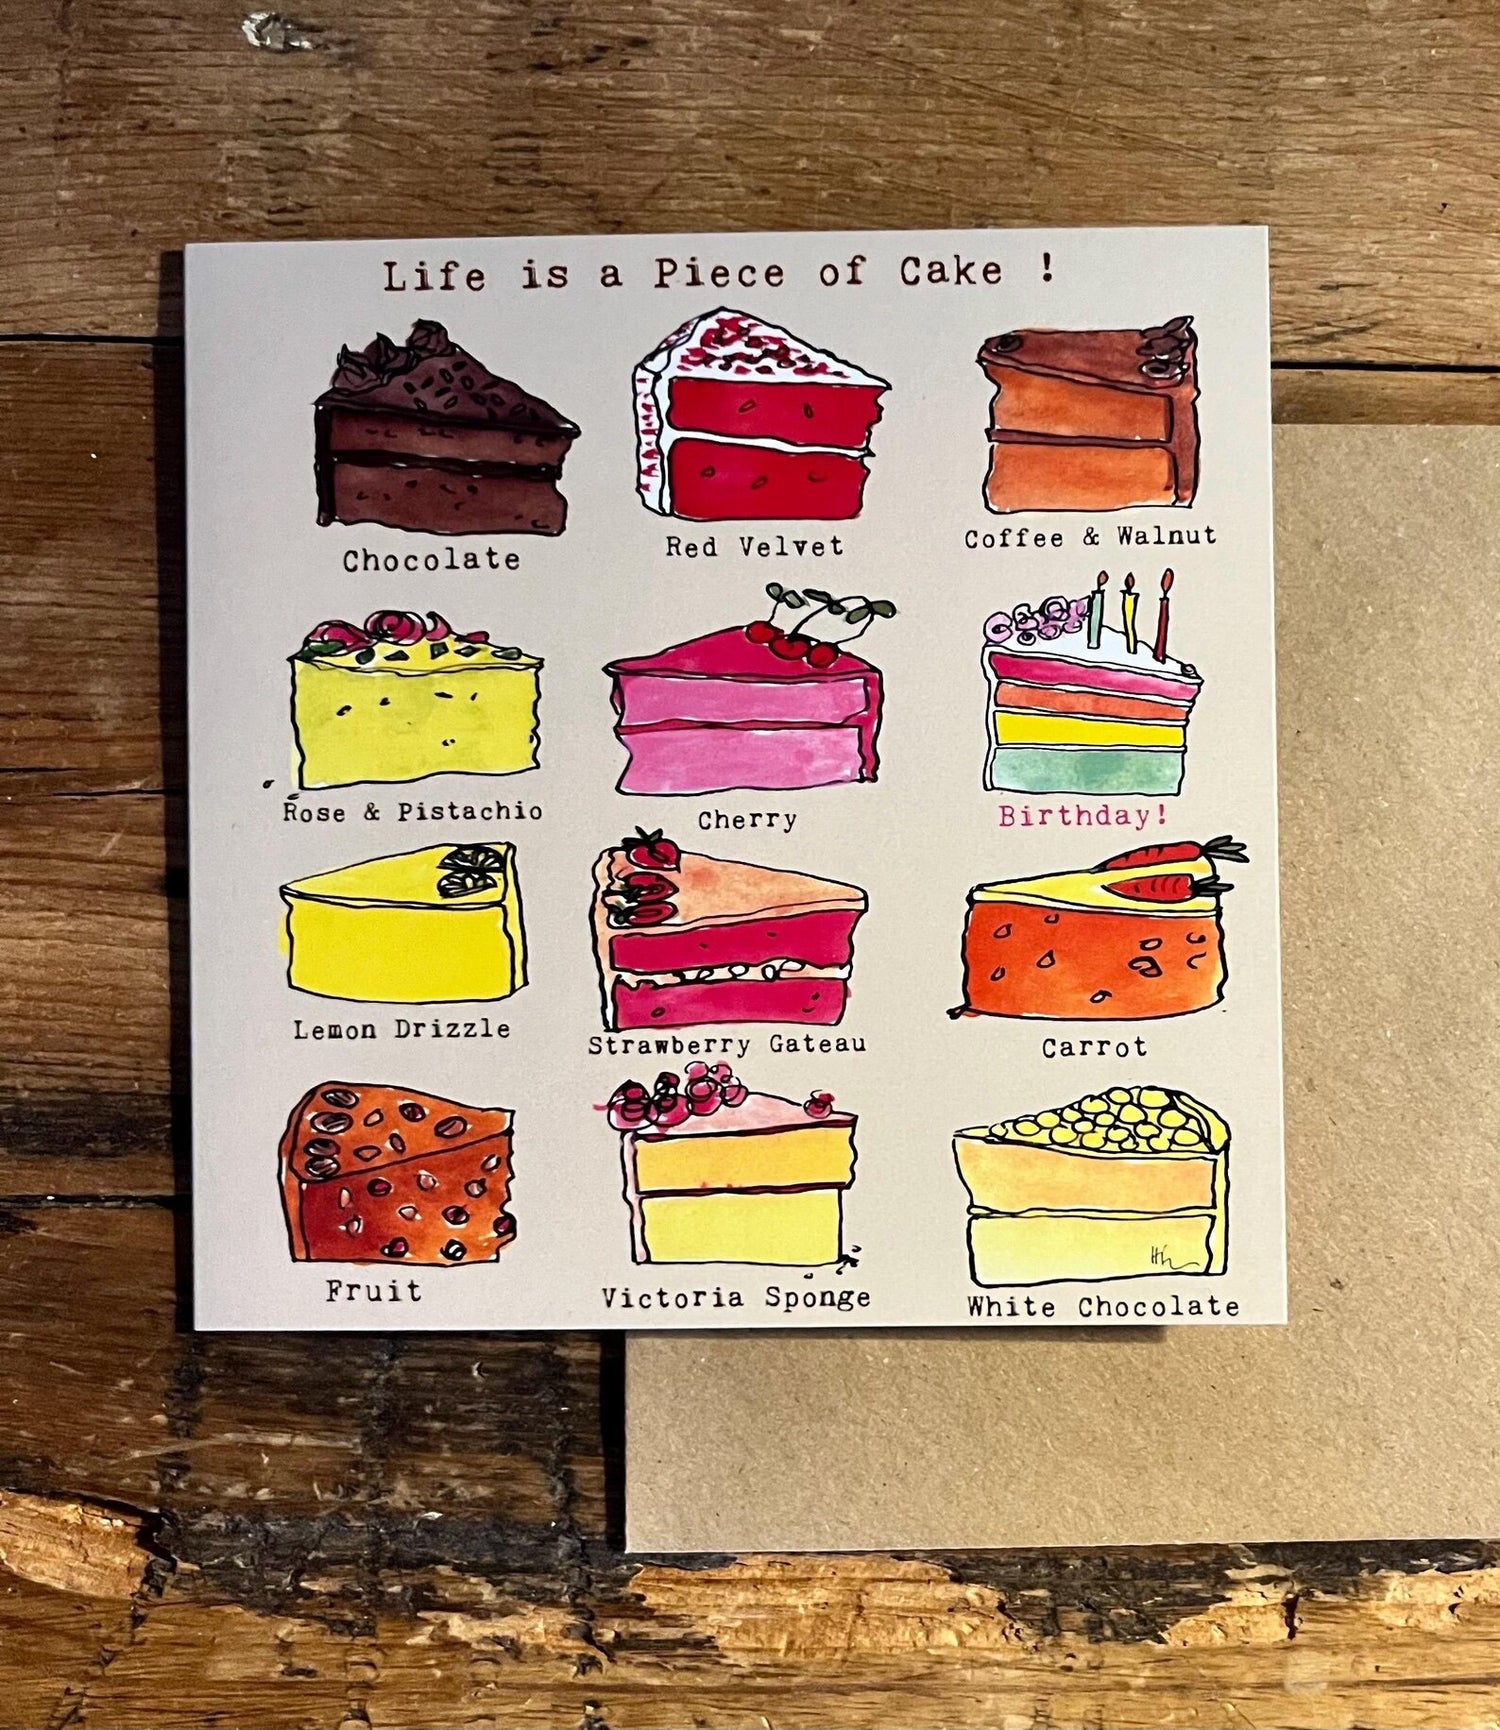 Life is a Piece of Cake !
Chocolate
Red Velvet
Coffee & Walnut
Rose & Pistachio
Cherry
Birthday!
Lemon Drizzle
Strawberry Gateau
Carrot
Fruit
Victoria Sponge
White Chocolate